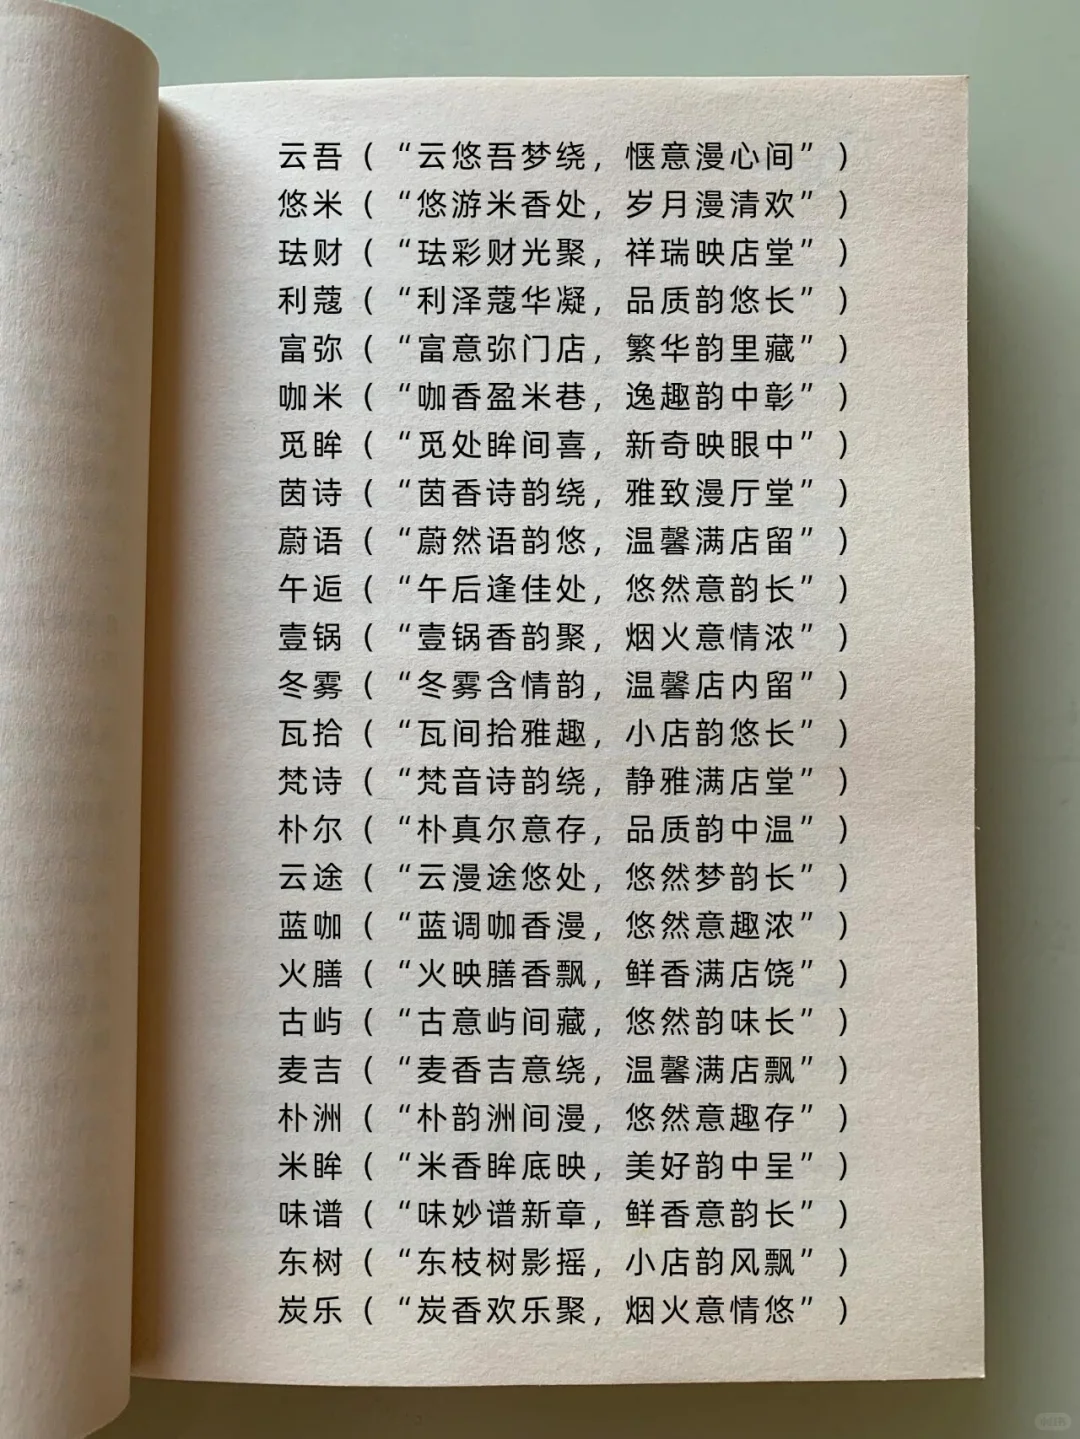 云吾（“云悠吾梦绕，惬意漫心间”）
悠米（“悠游米香处，岁月漫清欢”）
珐财（“珐彩财光聚，祥瑞映店堂”）
利蔻（“利泽蔻华凝，品质韵悠长”）
富弥（“富意弥门店，繁华韵里藏”）
咖米（“咖香盈米巷，逸趣韵中彰”）
觅眸（“觅处眸间喜，新奇映眼中”）
茵诗（“茵香诗韵绕，雅致漫厅堂”）
蔚语（“蔚然语韵悠，温馨满店留”）
午逅（“午后逢佳处，悠然意韵长”）
壹锅（“壹锅香韵聚，烟火意情浓”）
冬雾（“冬雾含情韵，温馨店内留”）
瓦拾（“瓦间拾雅趣，小店韵悠长”）
梵诗（“梵音诗韵绕，静雅满店堂”）
朴尔（“朴真尔意存，品质韵中温”）
云途（“云漫途悠处，悠然梦韵长”）
蓝咖（“蓝调咖香漫，悠然意趣浓”）
火膳（“火映膳香飘，鲜香满店饶”）
古屿（“古意屿间藏，悠然韵味长”）
麦吉（“麦香吉意绕，温馨满店飘”）
朴洲（“朴韵洲间漫，悠然意趣存”）
米眸（“米香眸底映，美好韵中呈”）
味谱（“味妙谱新章，鲜香意韵长”）
东树（“东枝树影摇，小店韵风飘”）
炭乐（“炭香欢乐聚，烟火意情悠”）